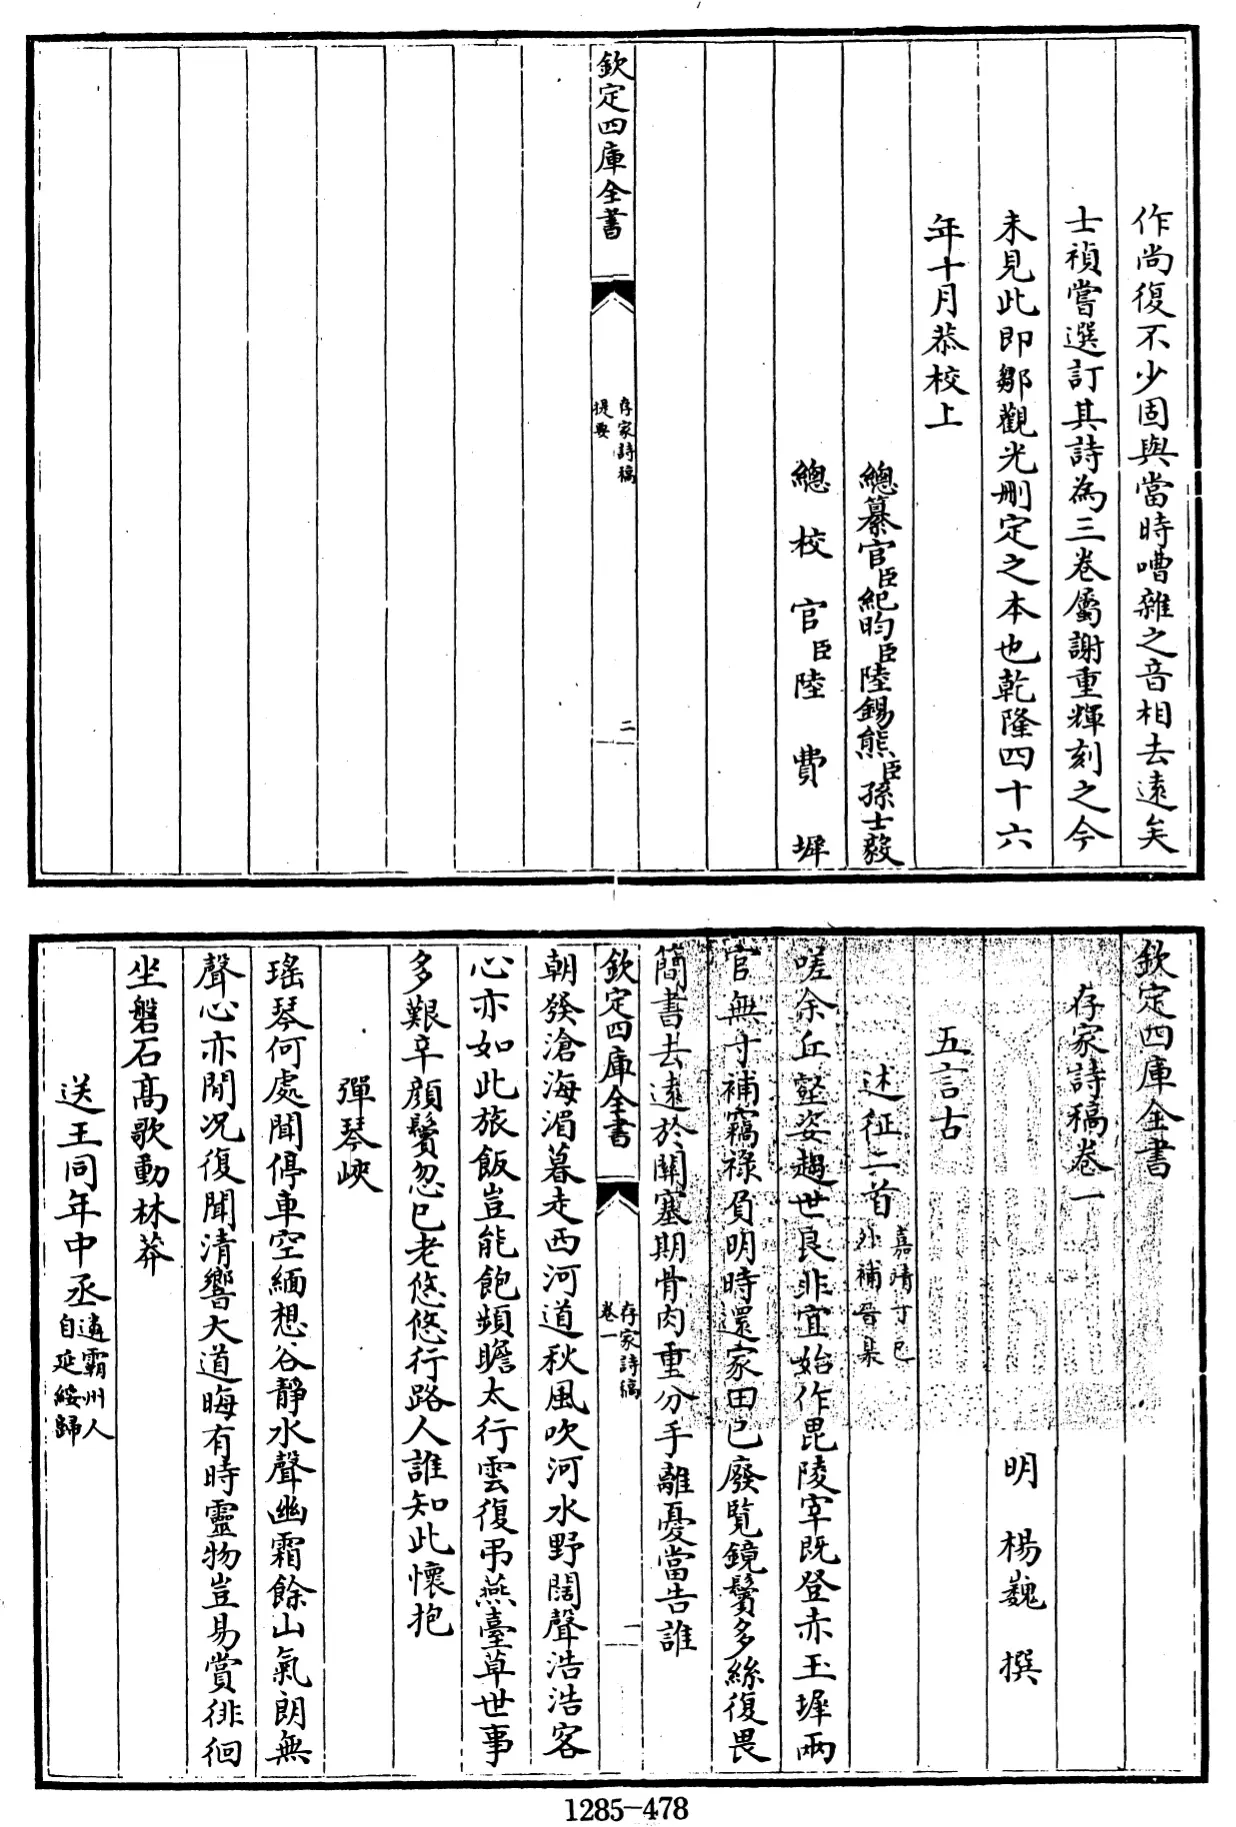 作尚復不少固與當時嘈雜之音相去遠矣
士禎嘗選訂其詩為三卷屬謝重輝刻之今
未見此即鄒觀光刪定之本也乾隆四十六
年十月恭校上
總纂官臣紀昀臣陸錫熊臣孫士毅
總校官臣陸費墀
欽定四庫全書
存家詩稿
提要
二
欽定四庫全書
存家詩稿卷一
明楊巍撰
五言古
述征二首
嘉靖丁巳
外補晉臬
嗟余丘壑姿趨世良非宜始作毘陵宰既登赤玉墀兩
官無寸補竊祿負明時還家田已廢覽鏡鬢多絲復畏
簡書去遠於關塞期骨肉重分手離憂當告誰
欽定四庫全書
存家詩稿
卷一
一
朝發滄海湄暮走西河道秋風吹河水野闊聲浩浩客
心亦如此旅飯豈能飽頻瞻太行雲復弔燕臺草世事
多艱辛顏鬢忽已老悠悠行路人誰知此懷抱
彈琴峽
瑤琴何處聞停車空緬想谷靜水聲幽霜餘山氣朗無
聲心亦閒况復聞清響大道晦有時靈物豈易賞徘徊
坐磐石高歌動林莽
送王同年中丞
遴霸州人
自延綏歸
1285-478